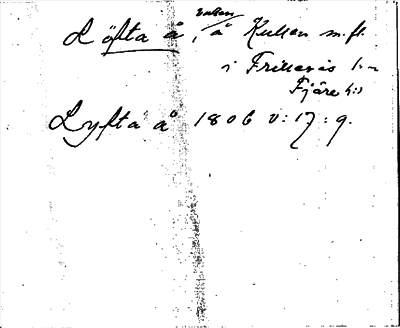 Löfta å, å Kullen m.fl.
i Frillesås s:n
Fjäre h:d
Lyfta å 1806 v: 17: 9.